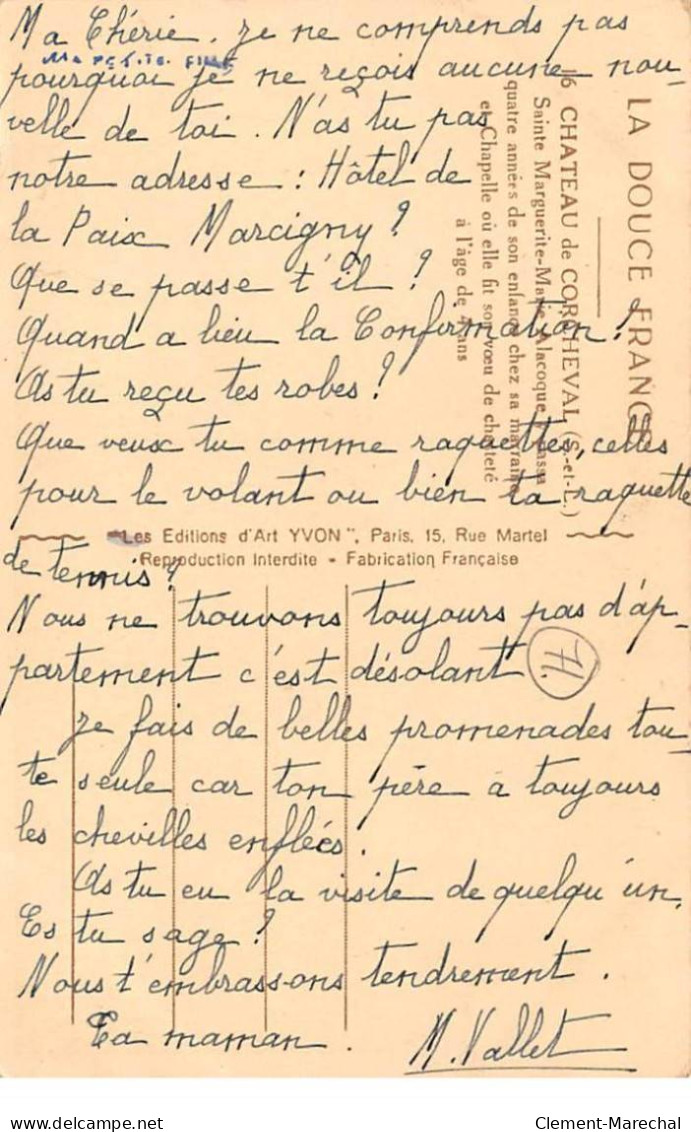 Ma Chérie. Je ne comprends pas
Ma petite fille
pourquoi je ne reçois aucune nou-
velle de toi. N'as tu pas
notre adresse : Hôtel de
la Paix Marcigny ?
Que se passe t'il ?
Quand a lieu la Confirmation ?
As tu reçu tes robes ?
Que veux tu comme raquettes, celles
pour le volant ou bien ta raquette
de tennis ?
Nous ne trouvons toujours pas d'ap-
partement c'est désolant
Je fais de belles promenades tou-
te seule car ton père a toujours
les chevilles enflées.
As tu eu la visite de quelqu'un.
Es tu sage ?
Nous t'embrassons tendrement.
Ta maman. M. Vallet
71.
LA DOUCE FRANCE
16 CHATEAU de CORCHEVAL (S.-et-L.)
Sainte Marguerite-Marie Alacoque passa
quatre années de son enfance chez sa marraine
et Chapelle où elle fit son vœu de chasteté
à l'âge de 4 ans
"Les Editions d'Art YVON", Paris, 15, Rue Martel
Reproduction Interdite - Fabrication Française
Clement-Marechal